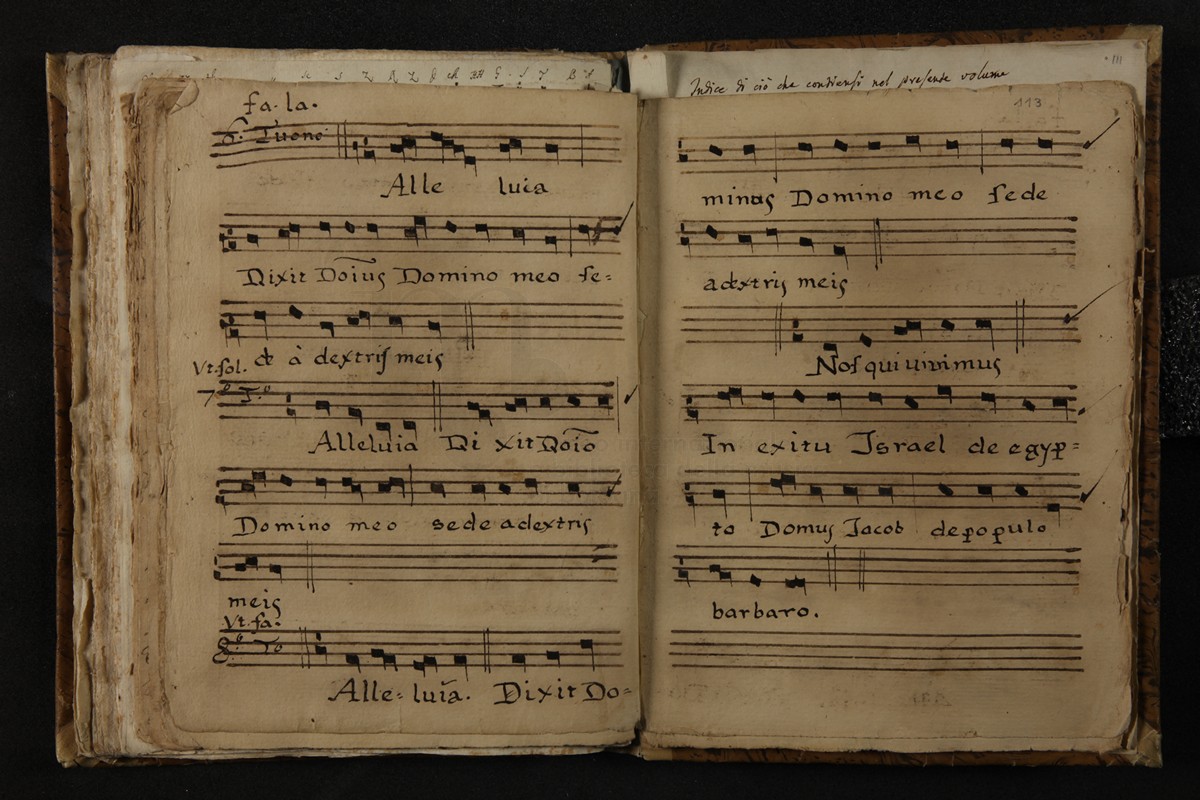 fa. la.
6. Tuono
Alle luia
Dixit Doĩus Domino meo se=
de à dextris meis
Vt. sol.
7º Tº
Alleluia Di xit Doĩo
Domino meo sede adextris
meis
Vt. fa.
8º Tº
Alle= luia. Dixit Do=
Indice di ciò che contiensi nel presente volume
III
113
minus Domino meo sede
adextris meis
Nos qui uiuimus
In exitu Israel de egyp=
to Domus Jacob de populo
barbaro.